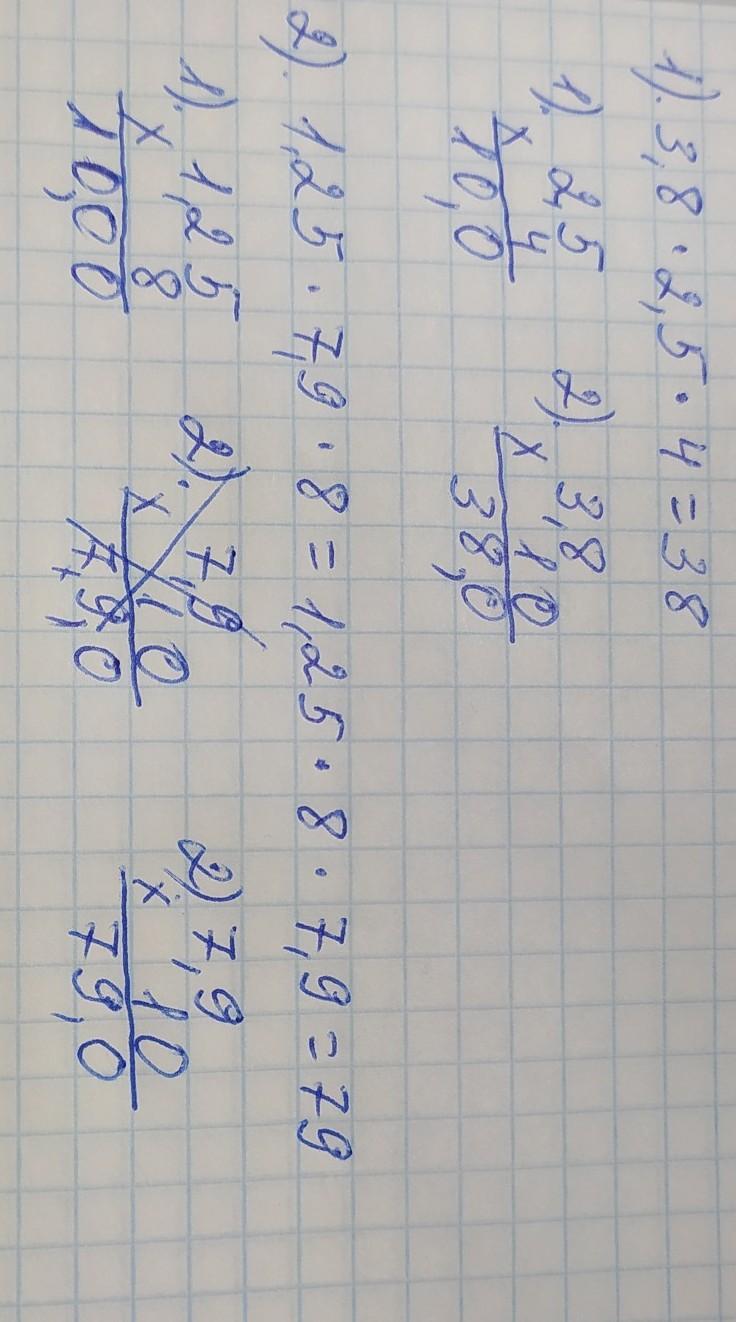 1). 3,8 · 2,5 · 4 = 38
1). 2,5 2). 3,8
× 4 × 10
10,0 38,0
2). 1,25 · 7,9 · 8 = 1,25 · 8 · 7,9 = 79
1). 1,25 2). 7,9 2) 7,9
× 8 × 10 × 10
10,00 7,9,0 79,0